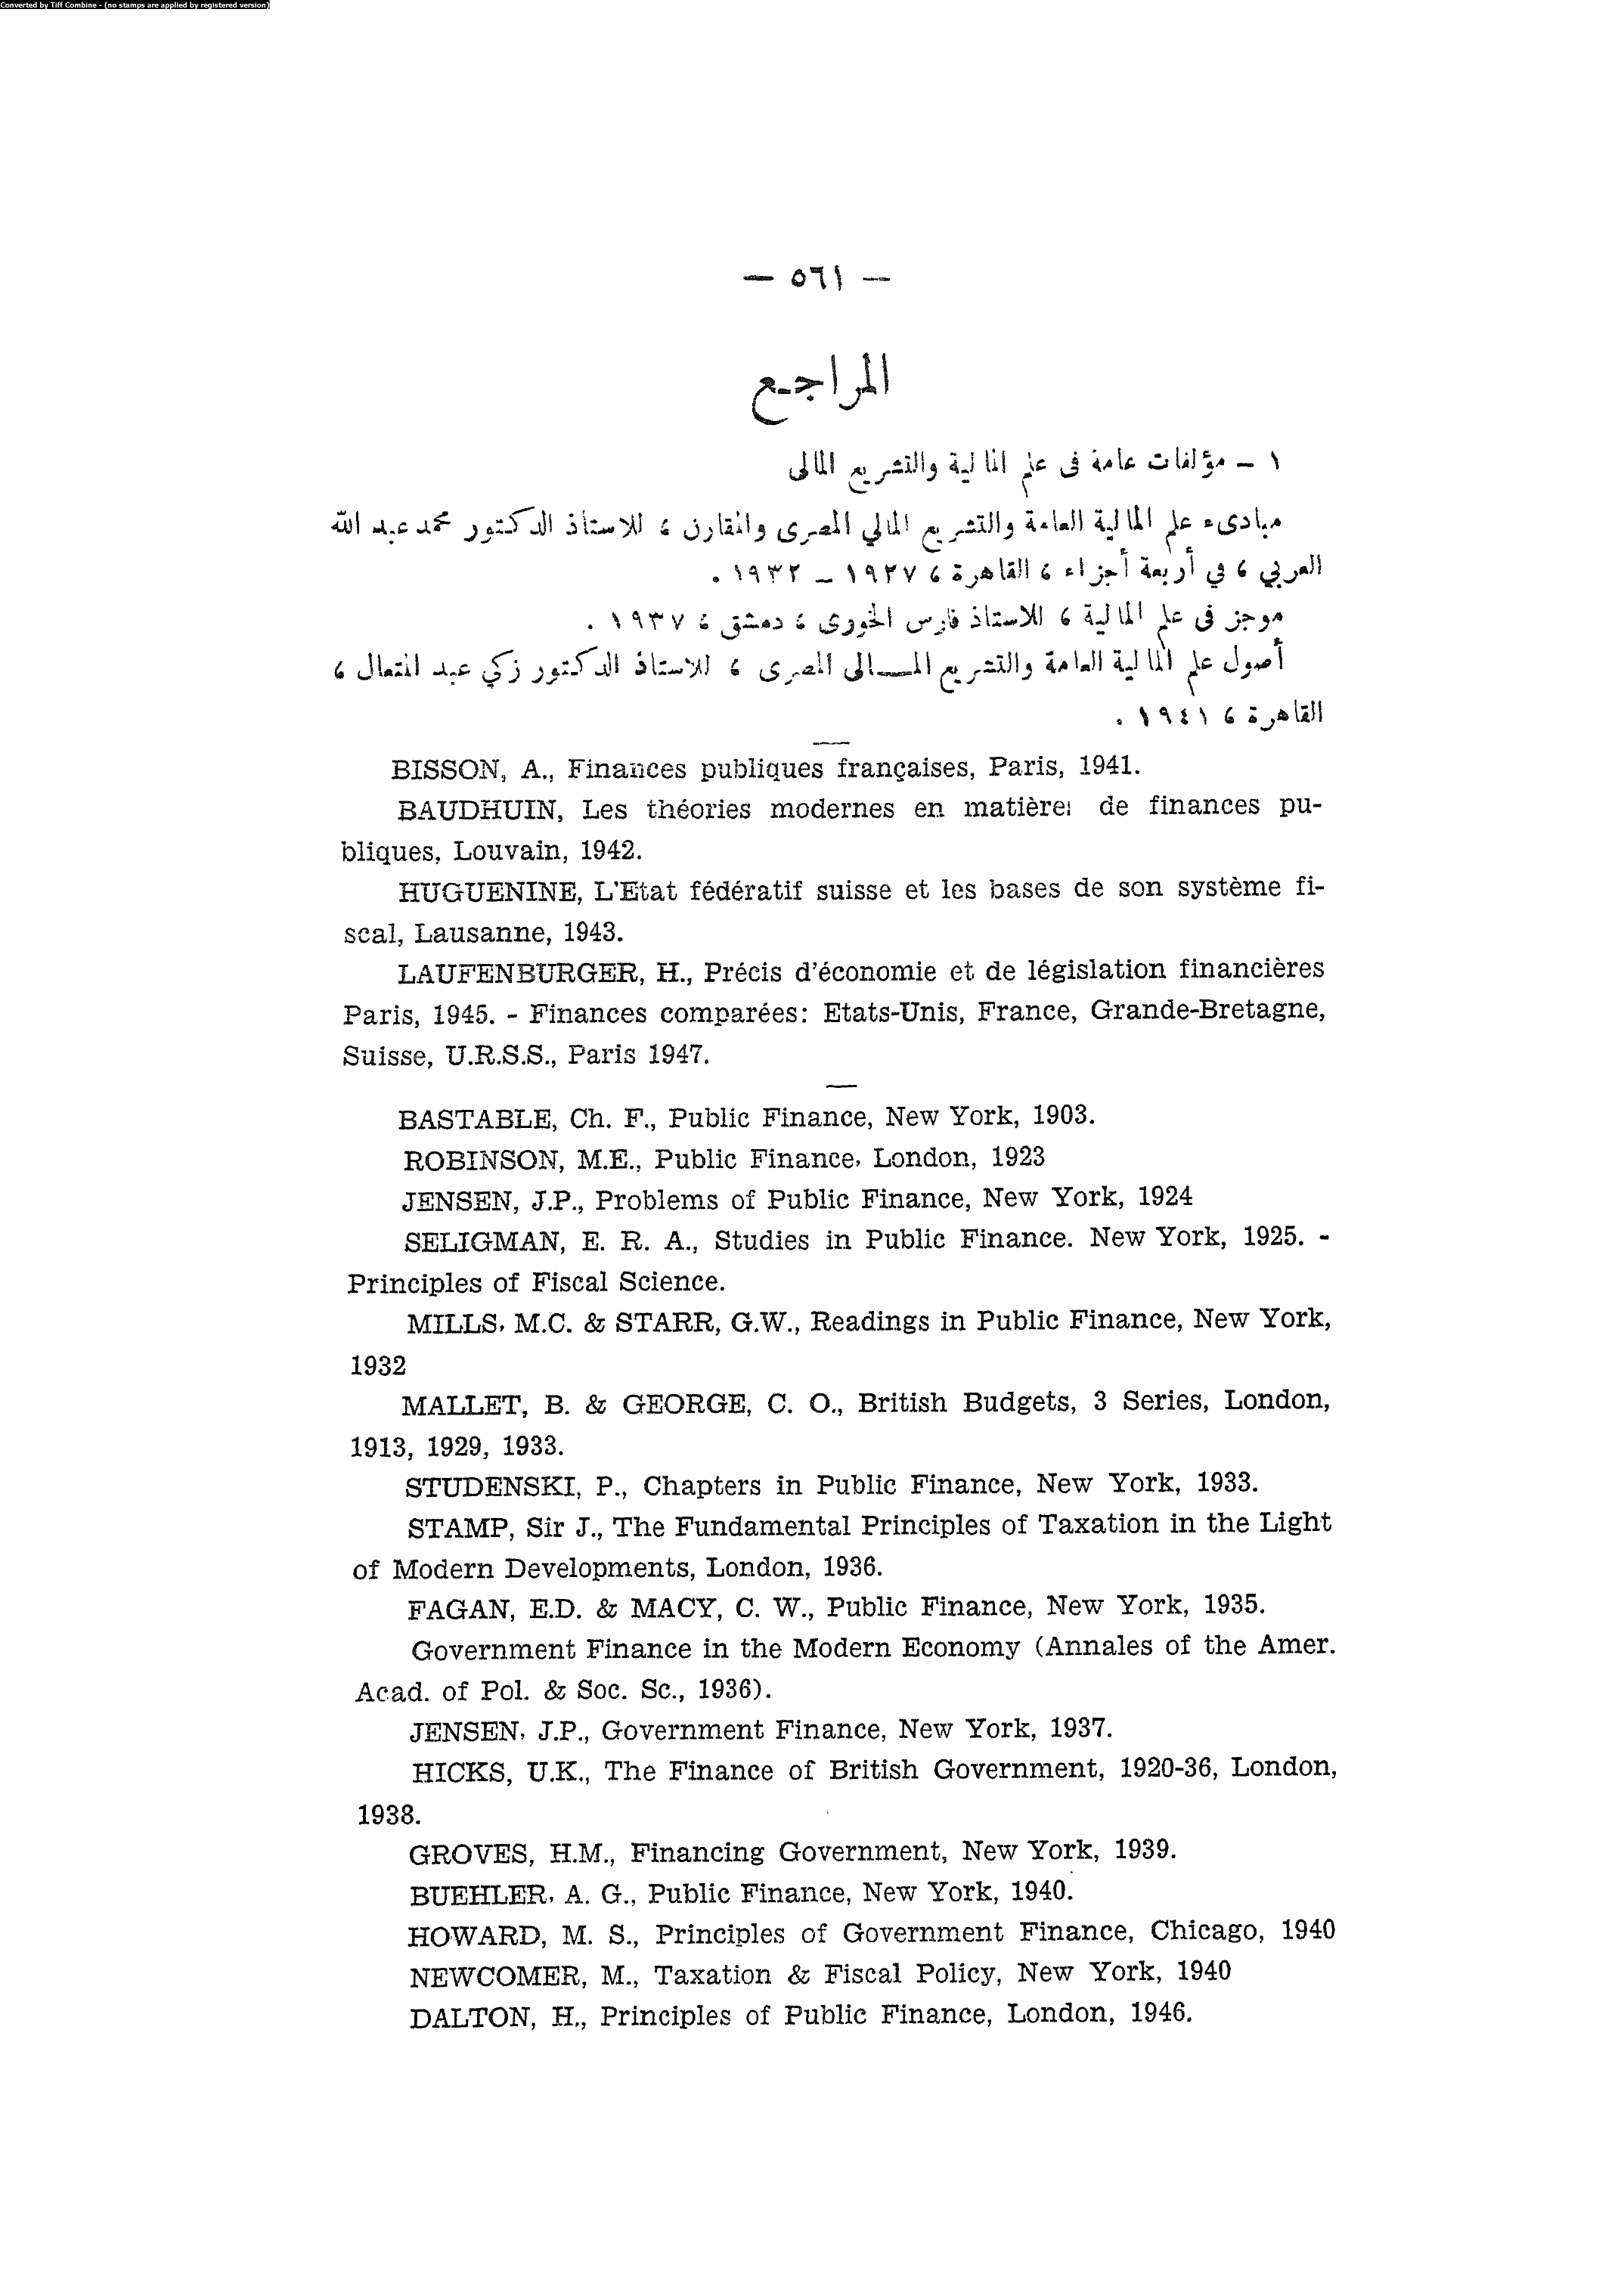 Converted by Tiff Combine - (no stamps are applied by registered version)
— ٥٦١ —
المراجع
١ – مؤلفات عامة فى علم المالية والتشريع المالى
مبادىء علم المالية العامة والتشريع المالي المصرى والمقارن ، للاستاذ الدكتور محمد عبد الله
العربي ، في أربعة أجزاء ، القاهرة ، ١٩٢٧ – ١٩٣٢ .
موجز فى علم المالية ، للاستاذ فارس الخورى ، دمشق ، ١٩٣٧ .
أصول علم المالية العامة والتشريع المـــالى المصرى ، للاستاذ الدكتور زكي عبد المتعال ،
القاهرة ، ١٩٤١ .
BISSON, A., Finances publiques françaises, Paris, 1941.
BAUDHUIN, Les théories modernes en matière de finances pu-
bliques, Louvain, 1942.
HUGUENINE, L'Etat fédératif suisse et les bases de son système fi-
scal, Lausanne, 1943.
LAUFENBURGER, H., Précis d'économie et de législation financières
Paris, 1945. - Finances comparées: Etats-Unis, France, Grande-Bretagne,
Suisse, U.R.S.S., Paris 1947.
BASTABLE, Ch. F., Public Finance, New York, 1903.
ROBINSON, M.E., Public Finance, London, 1923
JENSEN, J.P., Problems of Public Finance, New York, 1924
SELIGMAN, E. R. A., Studies in Public Finance. New York, 1925. -
Principles of Fiscal Science.
MILLS, M.C. & STARR, G.W., Readings in Public Finance, New York,
1932
MALLET, B. & GEORGE, C. O., British Budgets, 3 Series, London,
1913, 1929, 1933.
STUDENSKI, P., Chapters in Public Finance, New York, 1933.
STAMP, Sir J., The Fundamental Principles of Taxation in the Light
of Modern Developments, London, 1936.
FAGAN, E.D. & MACY, C. W., Public Finance, New York, 1935.
Government Finance in the Modern Economy (Annales of the Amer.
Acad. of Pol. & Soc. Sc., 1936).
JENSEN, J.P., Government Finance, New York, 1937.
HICKS, U.K., The Finance of British Government, 1920-36, London,
1938.
GROVES, H.M., Financing Government, New York, 1939.
BUEHLER, A. G., Public Finance, New York, 1940.
HOWARD, M. S., Principles of Government Finance, Chicago, 1940
NEWCOMER, M., Taxation & Fiscal Policy, New York, 1940
DALTON, H., Principles of Public Finance, London, 1946.